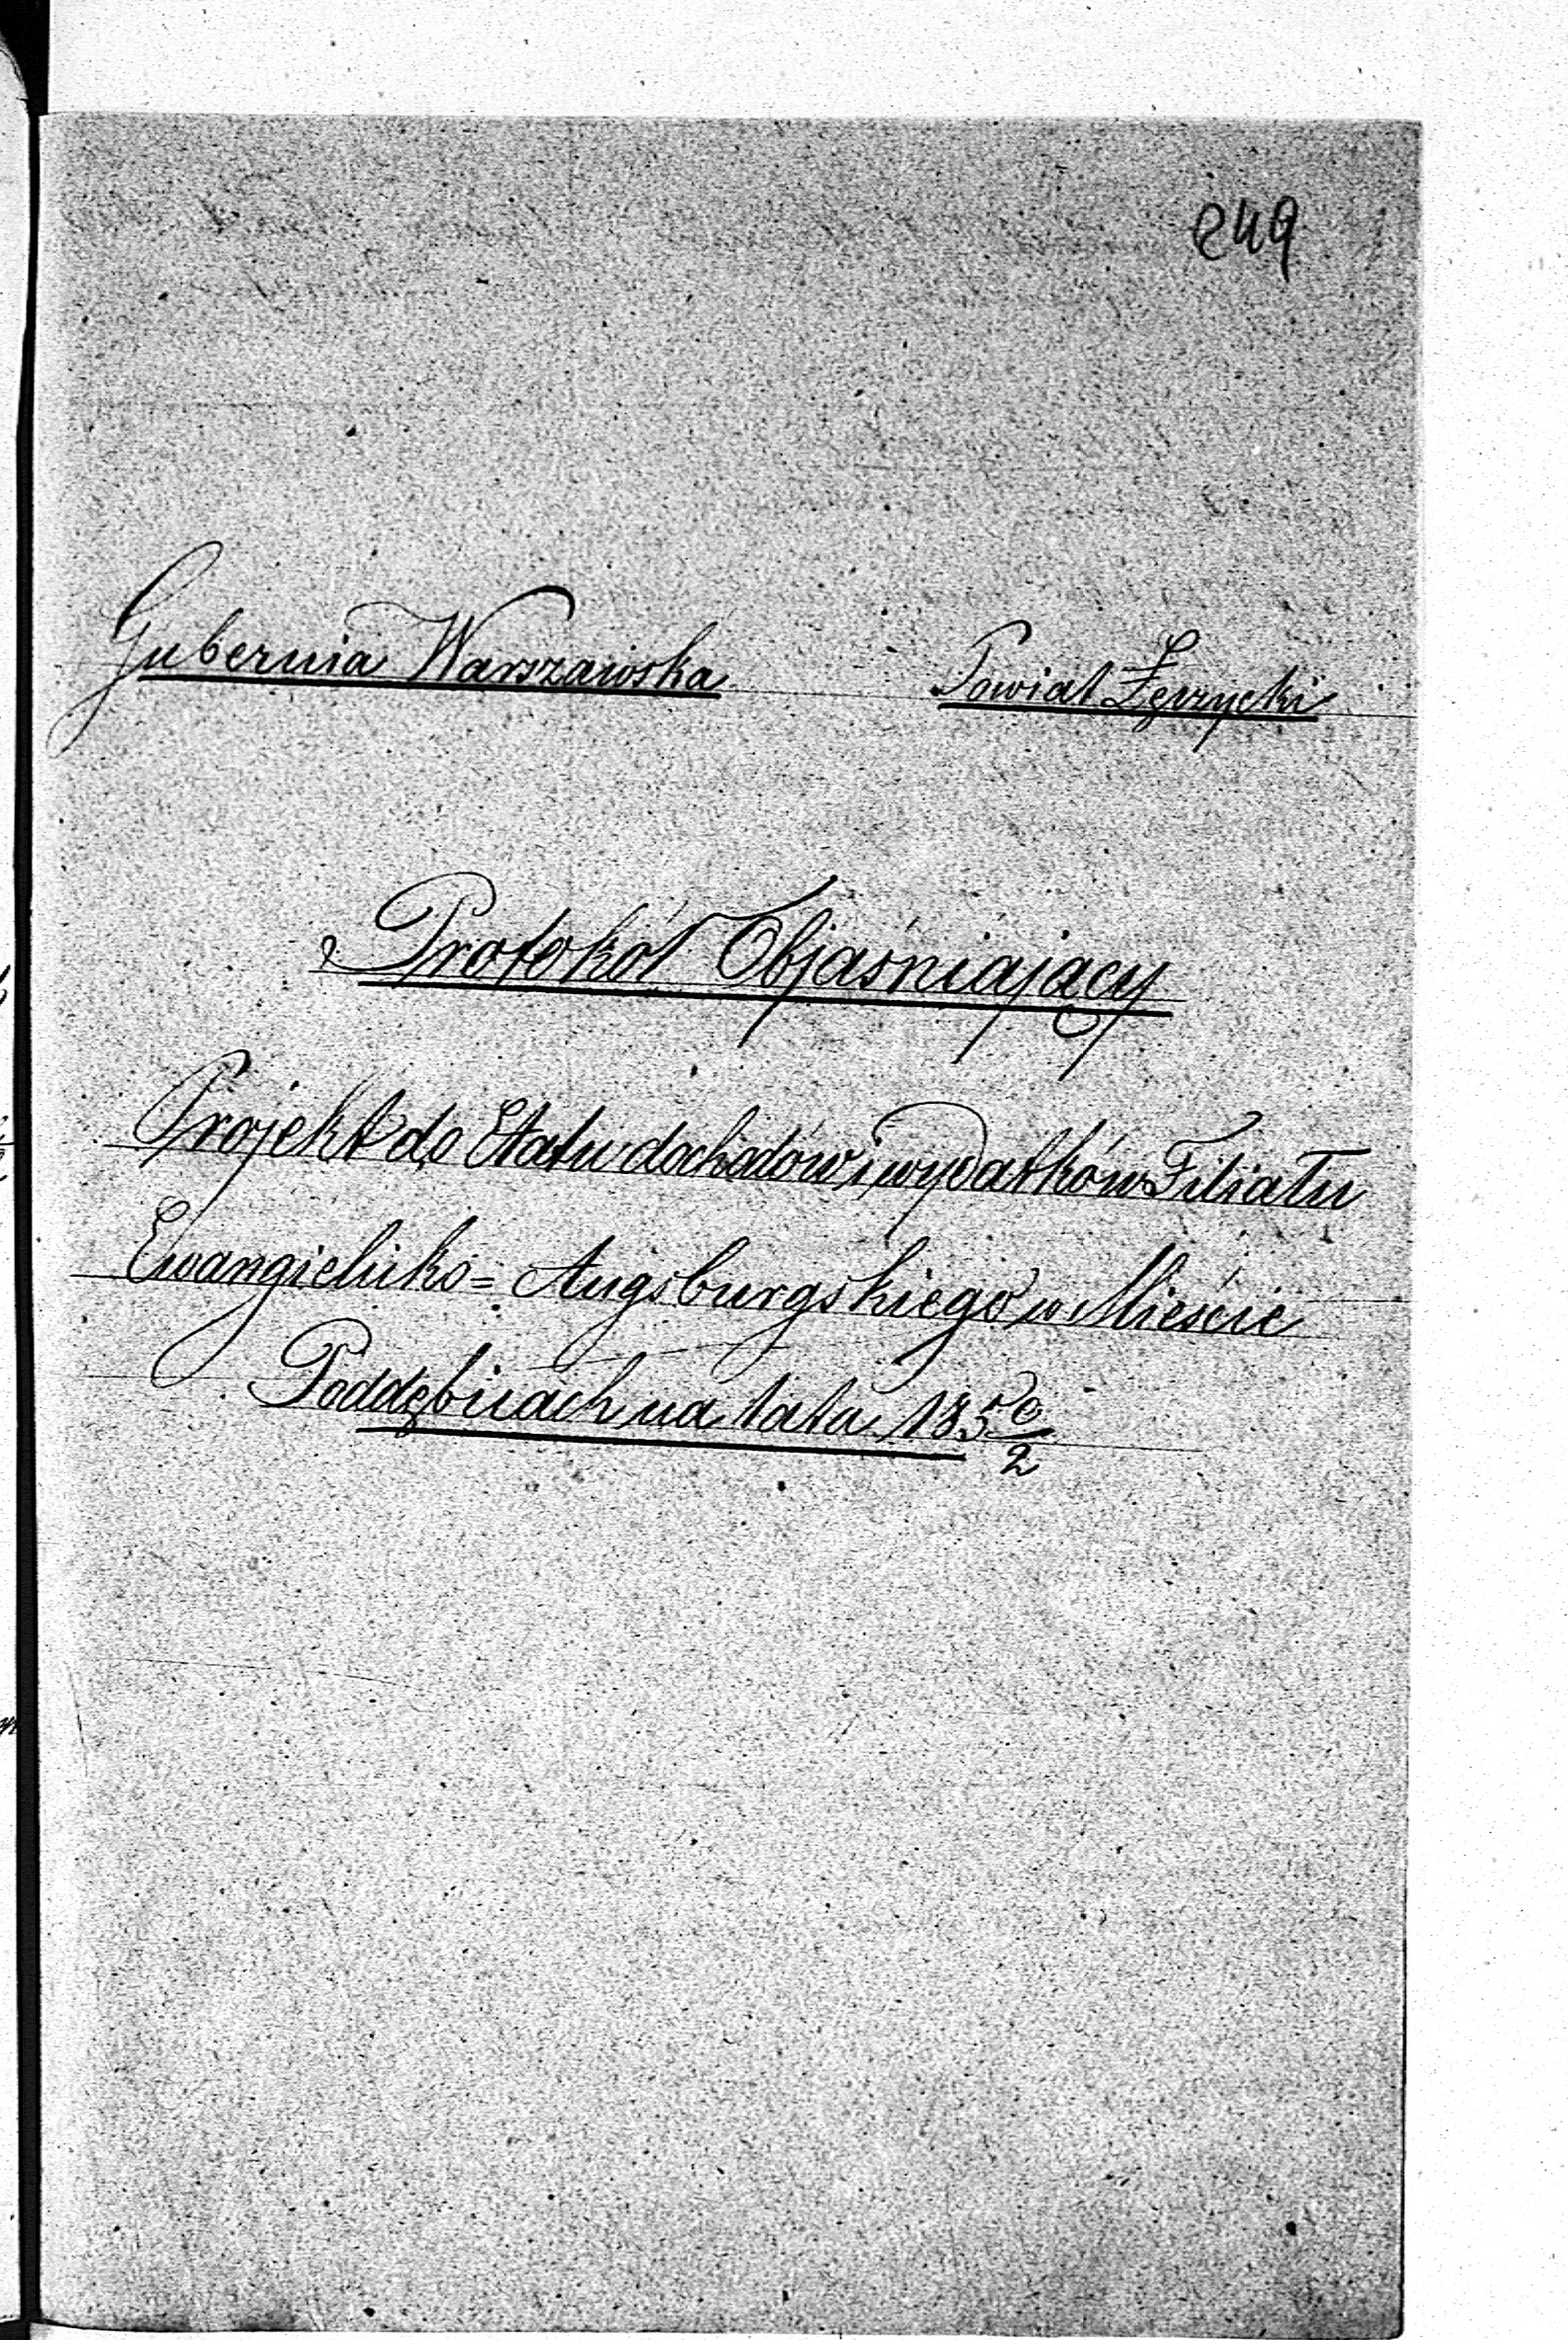 249
Gubernia Warszawska Powiat Łęczycki
Protokół Objaśniający
Projekt do Etatu dochodów i wydatków Filiału
Ewangielicko= Augsburgskiego w Mieście
Poddębicach na lata 185 0/2